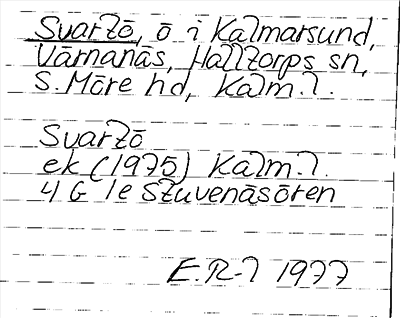 Svartö, ö i Kalmarsund,
Värnanäs, Halltorps sn,
S. Möre hd, Kalm. l.
Svartö
ek (1975) Kalm. l.
4 G 1e Stuvenäsören
E. R-l 1977